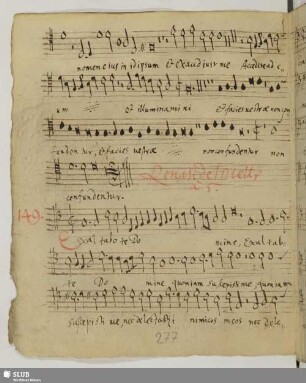 nomen eius in idipsum et exaudiuit me Accedite ad e,
um et illuminamini et facies vestræ non con
fundentur, et facies vestræ non confundentur non
confundentur.
5.
149.
Exaltabo te Do mine, Exaltab:
te Do mine quoniam suscepisti me quoniam
suscepisti me, nec delectasti inimicos meos nec dele,
277
SLUB